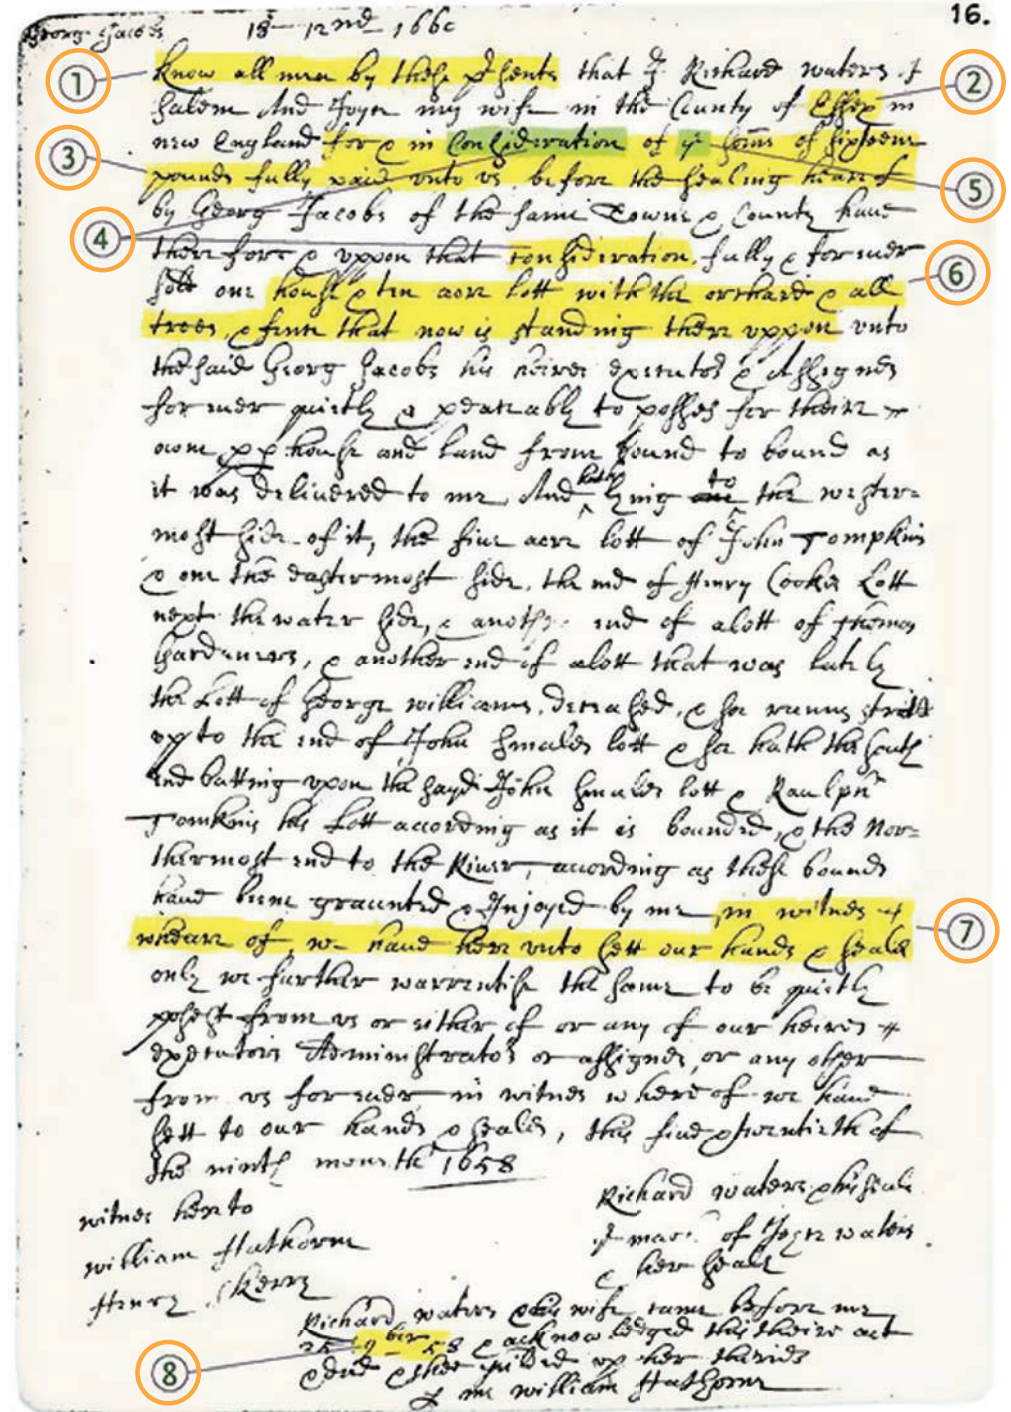 Georg Jacobs 18 - 12nd 1660
16.
① Know all men by these psents that I Richard waters of ②
Salem And Joyce my wife in the County of Essex in
③ new England for & in Consideration of ye somē of sixteene
pounds fully paid unto us before the sealing heare of ⑤
④ by Georg Jacobs of the same Towne & County have
there fore & uppon that consideration, fully & forever
sold our house & ten acre lott with the orchard & all ⑥
trees, & fence that now is standing there uppon unto
the said Georg Jacobs his heires executors & Assignes
forever quietly & peaceably to posses for theire
owne house and land from bound to bound as
it was delivered to me And lying to the wester-
most side of it, the five acre lott of John Tompkins
& one the eastermost side, the end of Henry Cookes Lott
next the water side, & another end of a lott of Thomas
Gardeners, & another end of a lott that was lately
the Lott of George williams, deceased, & soe runns
up to the end of John Smales lott & soe hath the South
End butting upon the sayd John Smales lott &
Tomkins his Lott according as it is bounded, & the Nor-
thermost end to the River, according as these bounds
have bene graunted & Injoyed by me in witnes ⑦
wheare of we have here unto sett our hands & seals
only we further warrentise the same to be quietly
posest from us or either of or any of our heires
executors Administrators or assignes, or any other
from us forever in witnes where of we have
sett to our hands & seales, this five & twentieth of
the ninth month 1658
witnes hereto
william Hathorne
Henry Skerry
Richard waters & his seale
mark of Joyce waters
& her seale
Richard waters & his wife came before me
⑧ 25 9ber 58 & acknowledged this theire act
& deed & shee yeilded up her thirds
me william Hathorne